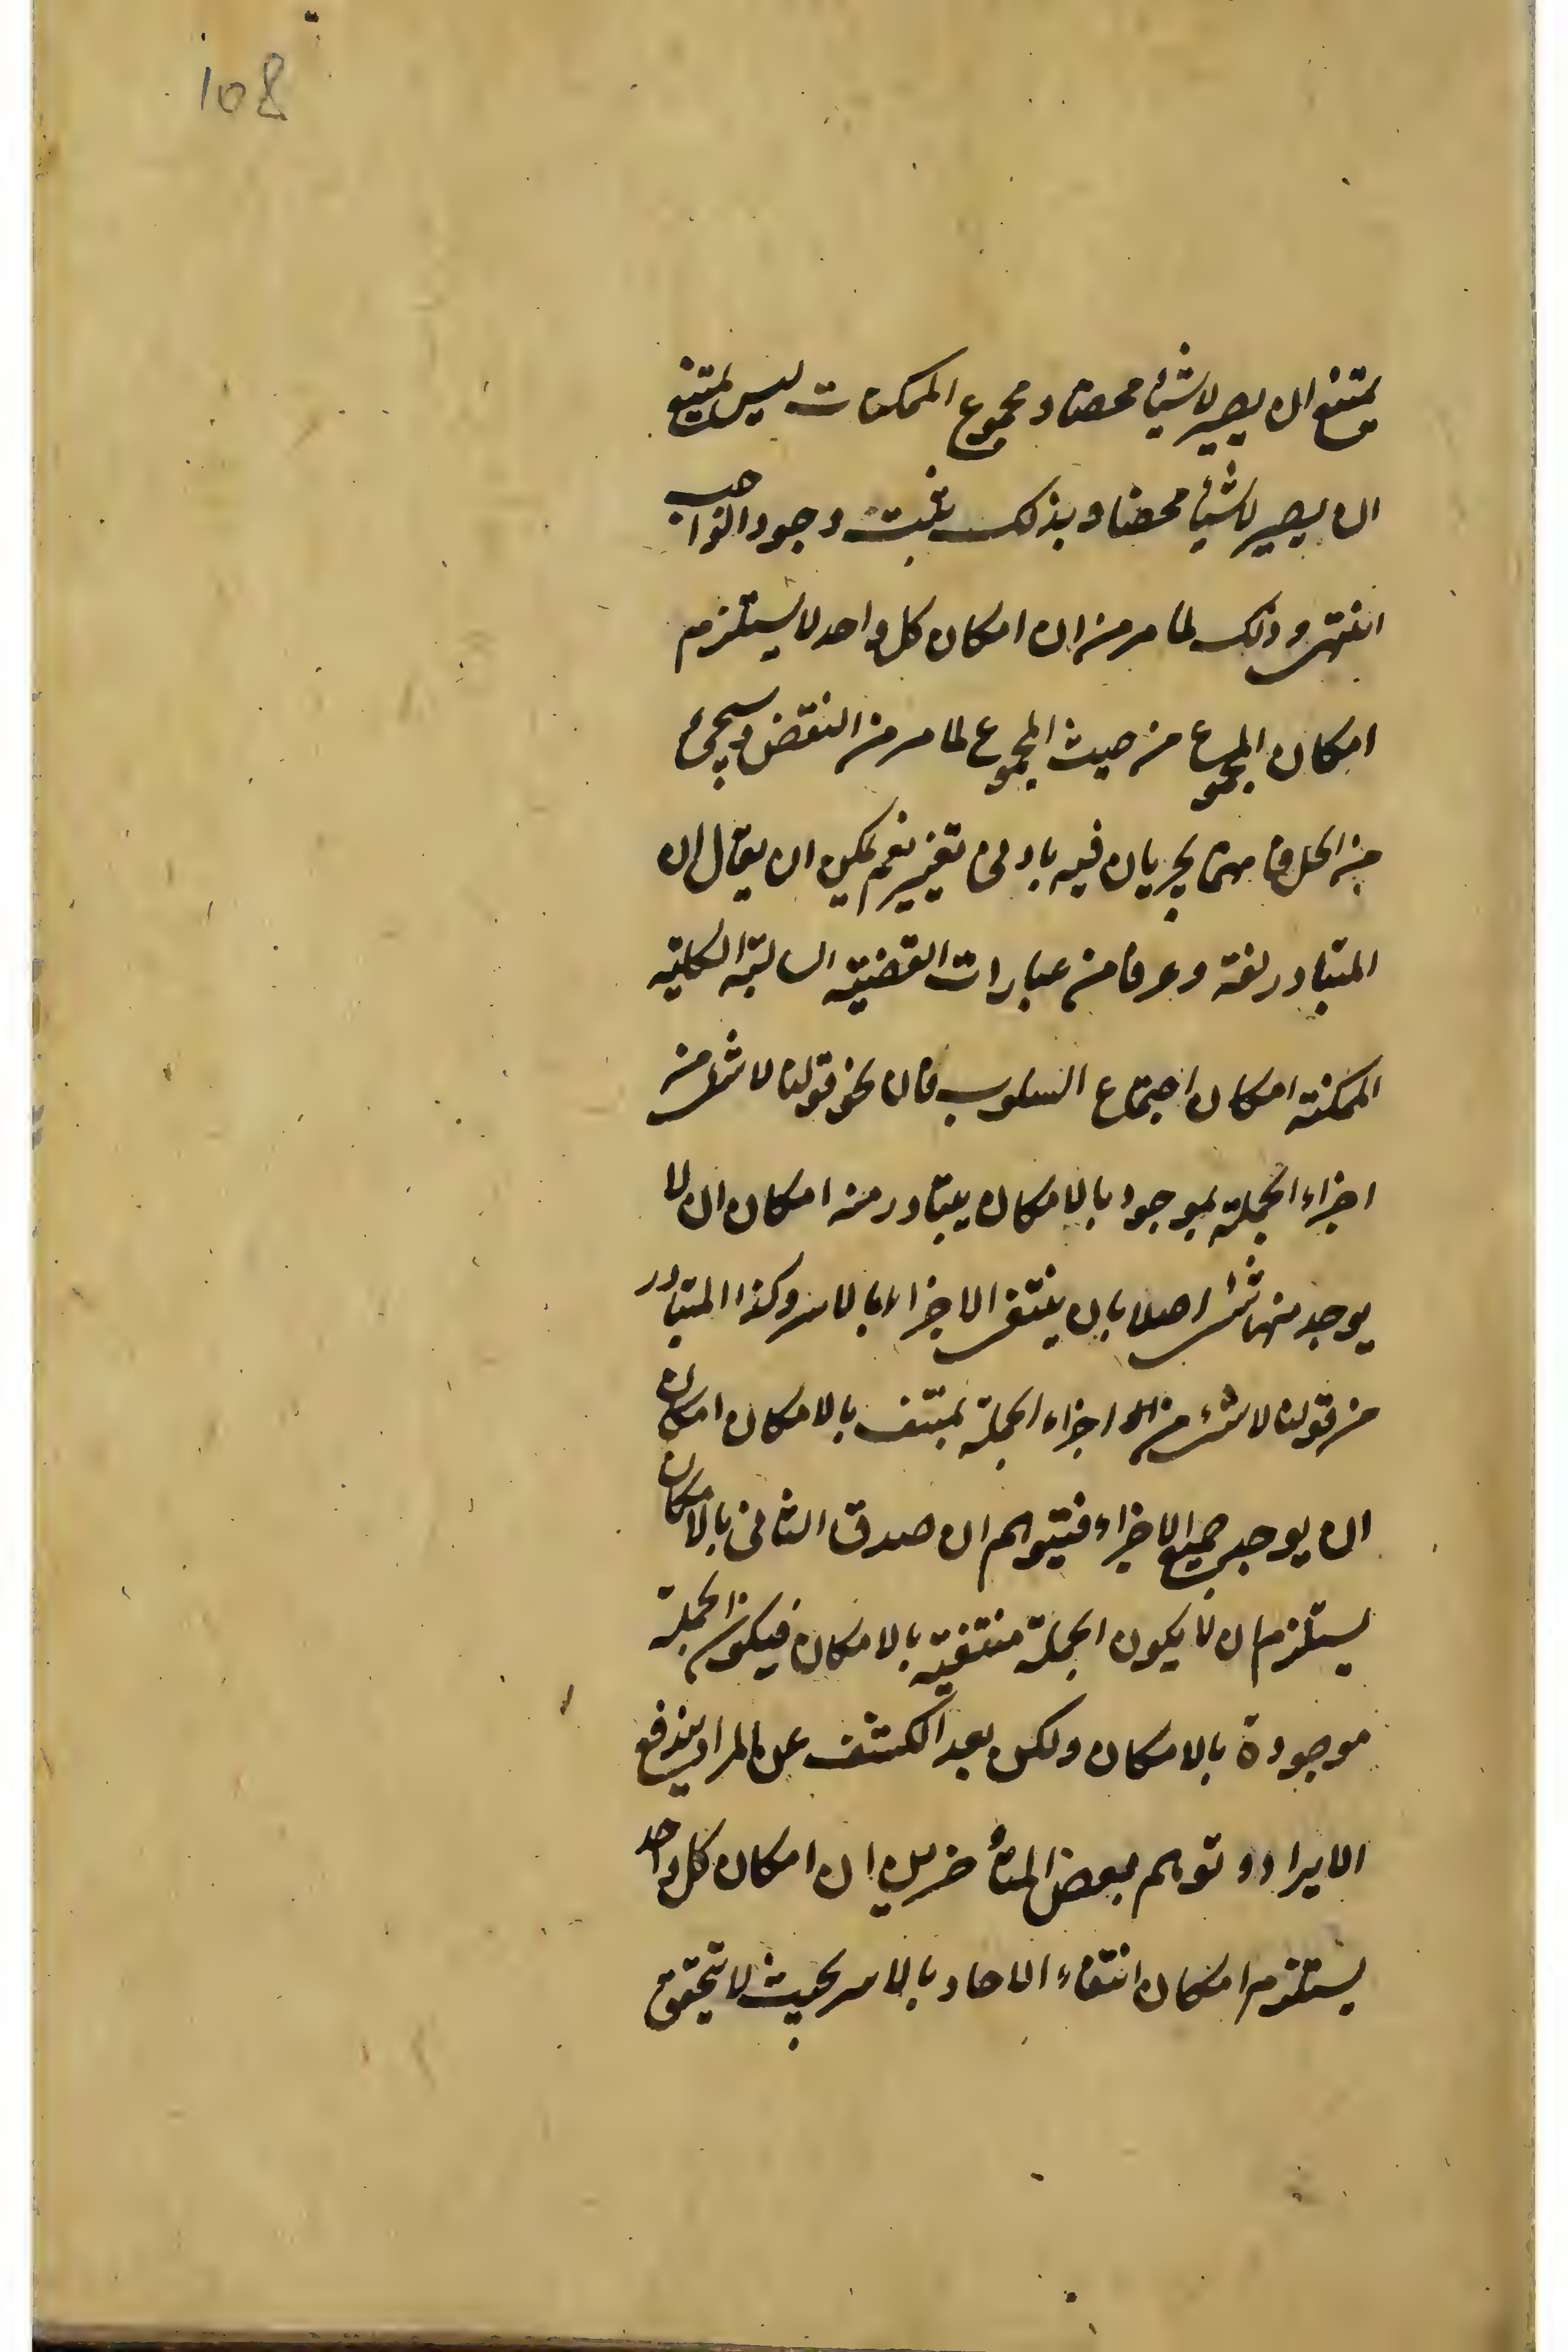 108
يمتنع ان يصير لا شيئا محضا ومجموع الممكنات ليس يمتنع
ان يصير لا شيئا محضا وبذلك يثبت وجود الواجب
انتهى وذلك لما مر من ان امكان كل واحد لا يستلزم
امكان المجموع من حيث المجموع لما مر من النقض وسيجيء
من الحل فانهما يجريان فيه بادنى تغيير نعم يمكن ان يقال ان
المتبادر لغة وعرفا من عبارات القضية السالبة الكلية
الممكنة امكان اجتماع السلوب فان نحو قولنا لا شئ من
اجزاء الجملة بموجود بالامكان يتبادر منه امكان ان لا
يوجد منها شئ اصلا بان ينتفى الاجزاء بالاسر وكذا المتبادر
من قولنا لا شئ من اجزاء الجملة بمنتف بالامكان امكان
ان يوجد جميع الاجزاء فيتوهم ان صدق الثانى بالامكان
يستلزم ان لا يكون الجملة منتفية بالامكان فيكون الجملة
موجودة بالامكان ولكن بعد الكشف عن المراد يندفع
الايراد وتوهم بعض المتأخرين ان امكان كل واحد
يستلزم امكان انتفاء الاحاد بالاسر بحيث لا يتحقق